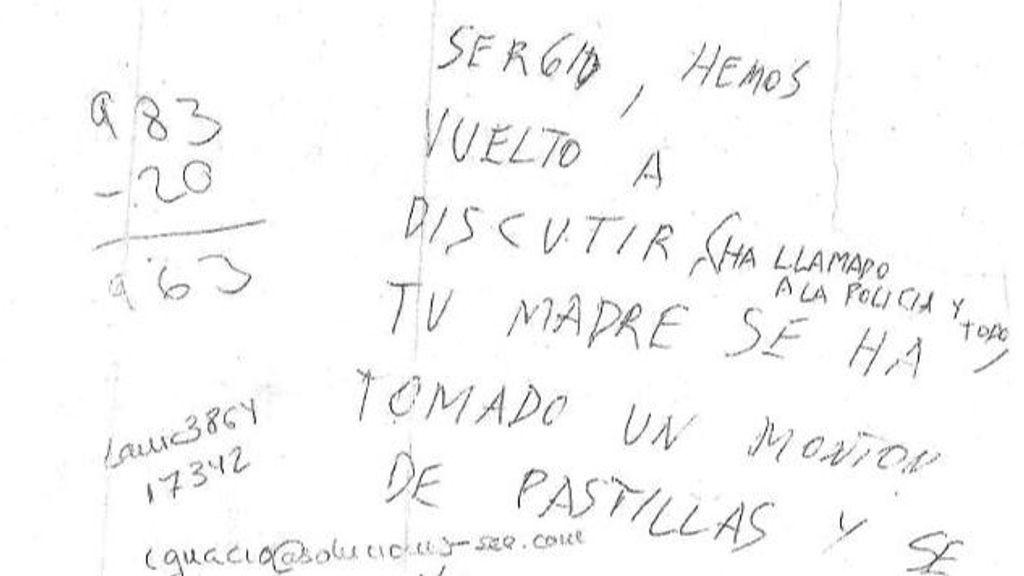 983
-20
963
SERGIO, HEMOS
VUELTO A
DISCUTIR, (HA LLAMADO
A LA POLICIA Y
TODO)
TU MADRE SE HA
TOMADO UN MONTON
DE PASTILLAS Y SE
17342